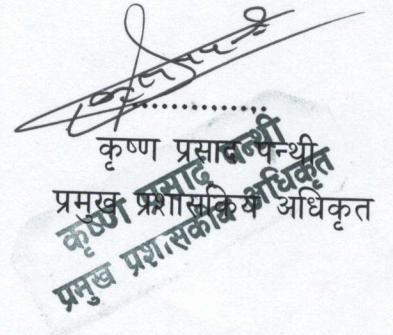 ..............
कृष्ण प्रसाद पन्थी
प्रमुख प्रशासकिय अधिकृत
कृष्ण प्रसाद पन्थी
प्रमुख प्रशासकीय अधिकृत